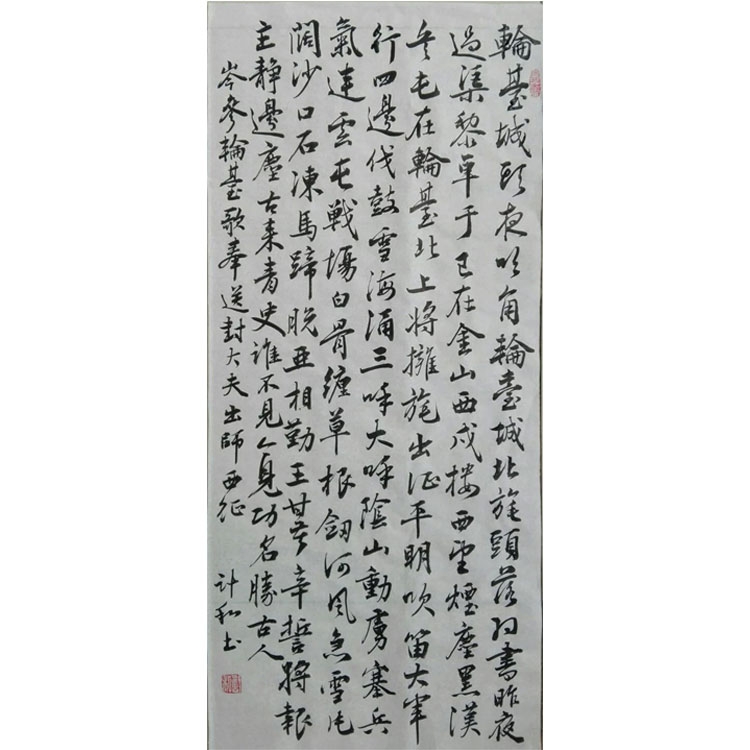 輪臺城頭夜吹角輪臺城北旄頭落羽書昨夜
過渠黎單于已在金山西戍樓西望煙塵黑漢
兵屯在輪臺北上將擁旄出征平明吹笛大軍
行四邊伐鼓雪海涌三軍大呼陰山動虜塞兵
氣連雲屯戰場白骨纏草根劍河風急雪片
闊沙口石凍馬蹄脫亞相勤王甘苦辛誓將報
主靜邊塵古來青史誰不見今見功名勝古人
岑參輪臺歌奉送封大夫出師西征
計和书